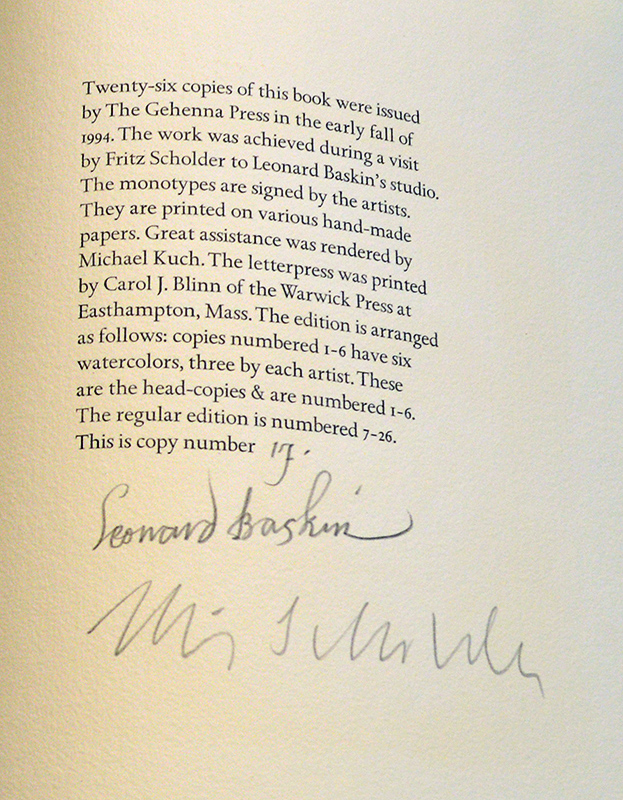 Twenty-six copies of this book were issued
by The Gehenna Press in the early fall of
1994. The work was achieved during a visit
by Fritz Scholder to Leonard Baskin's studio.
The monotypes are signed by the artists.
They are printed on various hand-made
papers. Great assistance was rendered by
Michael Kuch. The letterpress was printed
by Carol J. Blinn of the Warwick Press at
Easthampton, Mass. The edition is arranged
as follows: copies numbered 1-6 have six
watercolors, three by each artist. These
are the head-copies & are numbered 1-6.
The regular edition is numbered 7-26.
This is copy number 17.
Leonard Baskin
Fritz Scholder